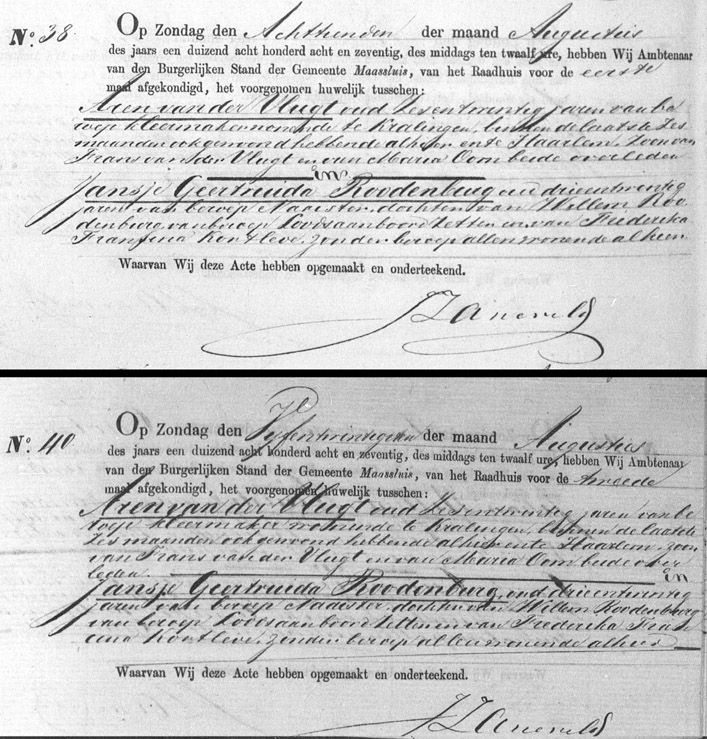 N.º 38. Op Zondag den Achttienden der maand Augustus
des jaars een duizend acht honderd acht en zeventig, des middags ten twaalf ure, hebben Wij Ambtenaar
van den Burgerlijken Stand der Gemeente Maassluis, van het Raadhuis voor de eerste
maal afgekondigd, het voorgenomen huwelijk tusschen:
Aren van der Vlugt oud zesentwintig jaren van be
roep kleermaker wonende te Kralingen, binnen de laatste zes
maanden ook gewoond hebbende alhier en te Haarlem, zoon van
Frans van der Vlugt en van Maria Oom beide overleden
en
Jansje Geertruida Roodenburg oud drieentwintig
jaren van beroep Naaister, dochter van Willem Roo
denburg van beroep Loodsaanboordzetter en van Frederika
Fransina Kortleve, zonder beroep allen wonende alhier.
Waarvan Wij deze Acte hebben opgemaakt en onderteekend.
N.º 40. Op Zondag den Vijfentwintigsten der maand Augustus
des jaars een duizend acht honderd acht en zeventig, des middags ten twaalf ure, hebben Wij Ambtenaar
van den Burgerlijken Stand der Gemeente Maassluis, van het Raadhuis voor de tweede
maal afgekondigd, het voorgenomen huwelijk tusschen:
Aren van der Vlugt oud zesentwintig jaren van be
roep kleermaker wonende te Kralingen, binnen de laatste
zes maanden ook gewoond hebbende alhier en te Haarlem, zoon
van Frans van der Vlugt en van Maria Oom beide over
leden. en
Jansje Geertruida Roodenburg, oud drieentwintig
jaren van beroep Naaister, dochter van Willem Roodenburg
van beroep Loodsaanboordzetter en van Frederika Fran
sina Kortleve, zonder beroep allen wonende alhier
Waarvan Wij deze Acte hebben opgemaakt en onderteekend.